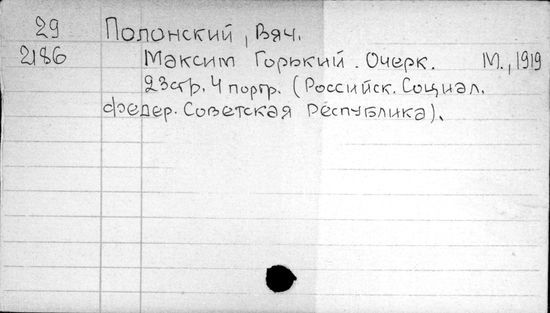 29 Полонский, Вяч.
2186 Максим Горький. Очерк. М., 1919
23стр. 4 портр. (Российск. Социал.
федер. Советская Республика).